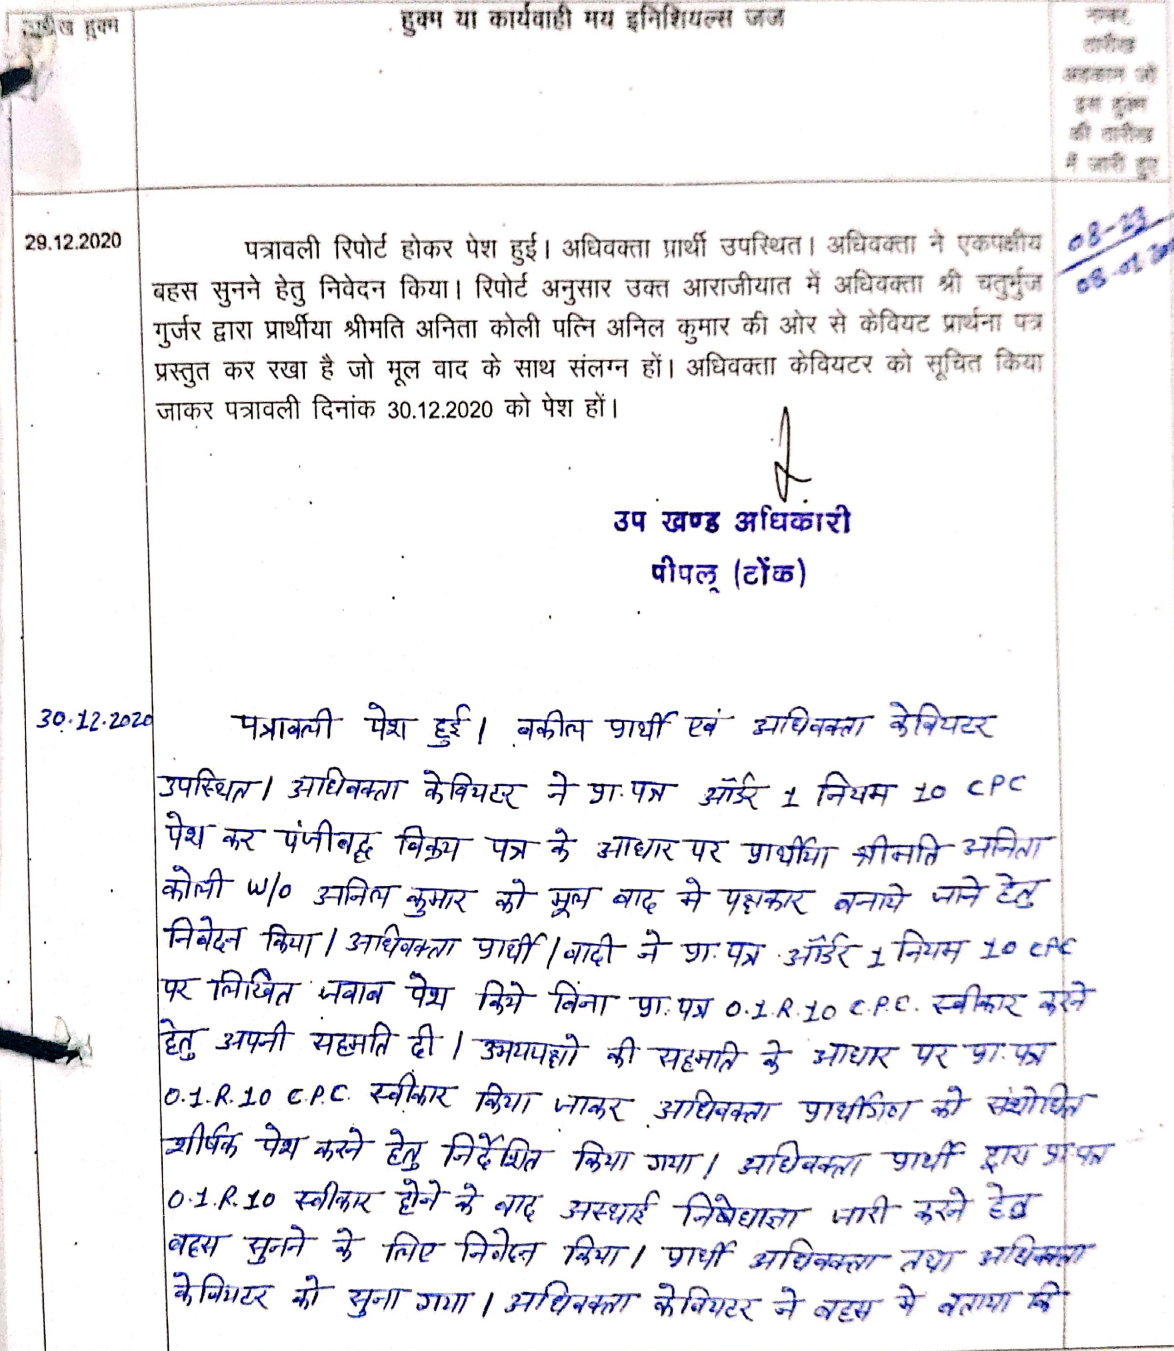 तारीख हुक्म
हुक्म या कार्यवाही मय इनिशियल्स जज
नम्बर
तारीख
अहकाम जो
इस हुक्म
की तारीख
में जारी हुए
29.12.2020
पत्रावली रिपोर्ट होकर पेश हुई। अधिवक्ता प्रार्थी उपस्थित। अधिवक्ता ने एकपक्षीय
बहस सुनने हेतु निवेदन किया। रिपोर्ट अनुसार उक्त आराजीयात में अधिवक्ता श्री चतुर्मुज
गुर्जर द्वारा प्रार्थीया श्रीमति अनिता कोली पत्नि अनिल कुमार की ओर से केवियट प्रार्थना पत्र
प्रस्तुत कर रखा है जो मूल वाद के साथ संलग्न हों। अधिवक्ता केवियटर को सूचित किया
जाकर पत्रावली दिनांक 30.12.2020 को पेश हों।
08-23
उप खण्ड अधिकारी
पीपलू (टोंक)
30.12.2020
पत्रावली पेश हुई। वकील प्रार्थी एवं अधिवक्ता केवियटर
उपस्थित। अधिवक्ता केवियटर ने प्रा.पत्र ऑर्डर 1 नियम 10 CPC
पेश कर पंजीबद्ध विक्रय पत्र के आधार पर प्रार्थीया श्रीमति अनिता
कोली W/o अनिल कुमार को मूल वाद मे पक्षकार बनाये जाने हेतु
निवेदन किया। अधिवक्ता प्रार्थी/वादी ने प्रा.पत्र ऑर्डर 1 नियम 10 CPC
पर लिखित जवाब पेश किये बिना प्रा.पत्र 0.1.R.10 C.P.C. स्वीकार करने
हेतु अपनी सहमति दी। उभयपक्षो की सहमति के आधार पर प्रा.पत्र
0.1.R.10 C.P.C. स्वीकार किया जाकर अधिवक्ता प्रार्थीगण को संशोधित
शीर्षक पेश करने हेतु निर्देशित किया गया। अधिवक्ता प्रार्थी द्वारा प्रा.पत्र
0.1.R.10 स्वीकार होने के बाद अस्थाई निषेधाज्ञा जारी करने हेतु
बहस सुनने के लिए निवेदन किया। प्रार्थी अधिवक्ता तथा अधिवक्ता
केवियटर को सुना गया। अधिवक्ता केवियटर ने बहस मे बताया कि